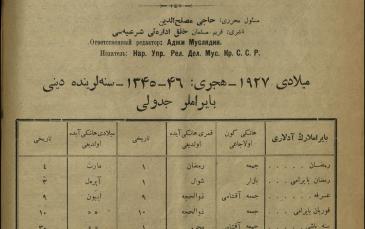 مسئول محرری: حاجی مصلح‌الدین
ناشری: قریم مسلمان خلق اداره‌ئی شرعیه‌سی
Ответственный редактор: Аджи Муслядин.
Издатель: Нар. Упр. Рел. Дел. Мус. Кр. С. С. Р.
میلادی ۱۹۲۷ – هجری: ۴۶–۱۳۴۵ – سنه‌لرینده دینی
بایراملر جدولی
بایراملارڭ آدلاری هانكی كون اولاجاغی قمری هانكی آیده اولدیغی تاریخی میلادی هانكی آیده اولدیغی تاریخی
رمضان جمعه رمضان ۱ مارت ٤
رمضان بایرامی بازار شوال ۱ آپریل ۳
عرفه جمعه آقشامی ذوالحجه ۹ اییون ۹
قوربان بایرامی جمعه ذوالحجه ۱۰ » » ۱۰